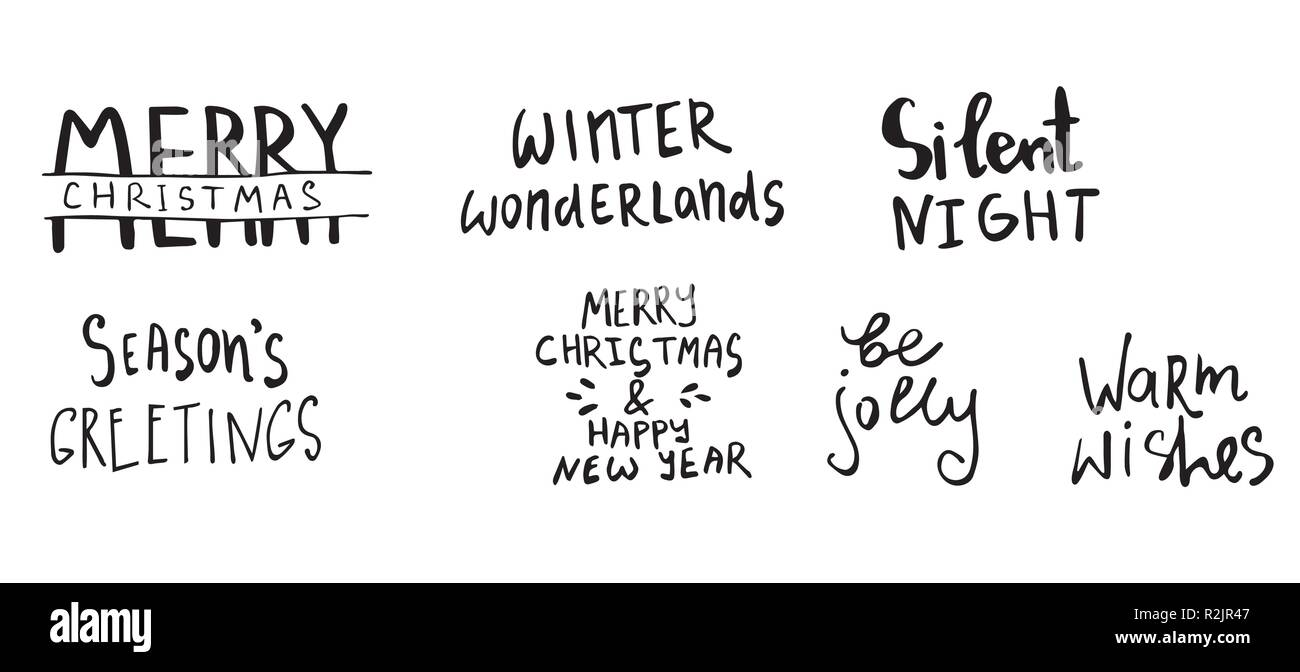 MERRY
CHRISTMAS
MERRY
WINTER
WonDERLands
Silent
NIGHT
SEASON'S
GREETINGS
MERRY
CHRISTMAS
&
HAPPY
NEW YEAR
be
jolly
WaRm
wishes
alamy
Image ID: R2JR47
www.alamy.com